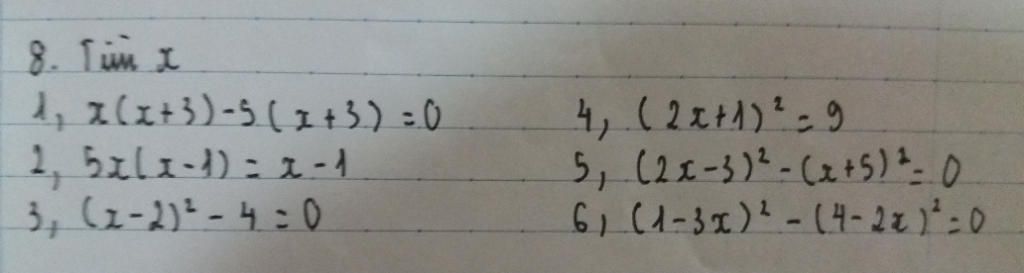 8. Tìm x
1, x(x+3)-5(x+3)=0
2, 5x(x-1)=x-1
3, (x-2)²-4=0
4, (2x+1)²=9
5, (2x-3)²-(x+5)²=0
6, (1-3x)²-(4-2x)²=0